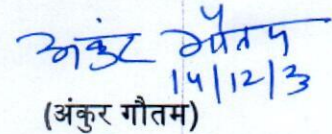 अंकुर गौतम
14/12/3
(अंकुर गौतम)